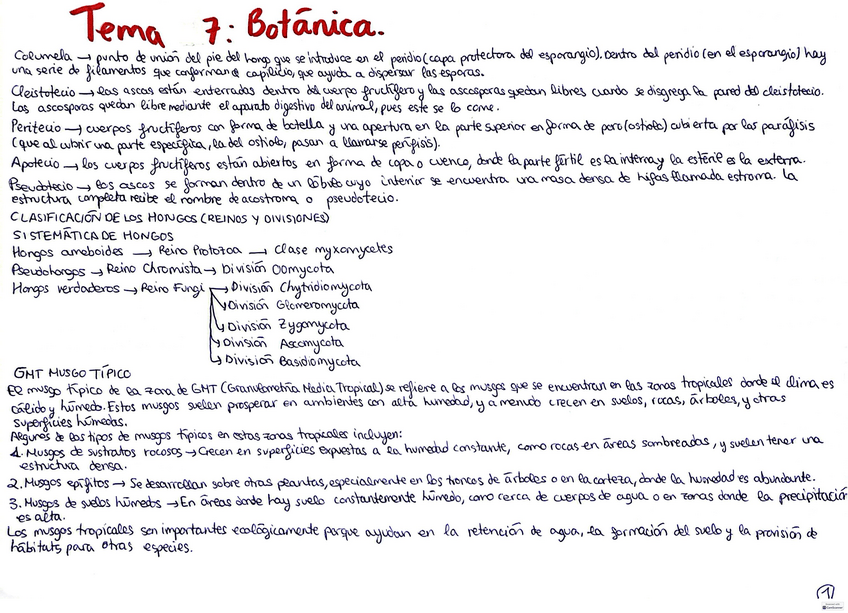 Tema 7: Botánica.
Columela → punto de unión del pie del hongo que se introduce en el peridio (capa protectora del esporangio). Dentro del peridio (en el esporangio) hay
una serie de filamentos que conforman el capilicio, que ayuda a dispersar las esporas.
Cleistotecio → las ascas están enterradas dentro del cuerpo fructífero y las ascosporas quedan libres cuando se disgrega la pared del cleistotecio.
Las ascosporas quedan libre mediante el aparato digestivo del animal, pues este se lo come.
Peritecio → cuerpos fructíferos con forma de botella y una apertura en la parte superior en forma de poro (ostiolo) cubierta por las paráfisis
(que al cubrir una parte específica, la del ostiolo, pasan a llamarse perífisis).
Apotecio → los cuerpos fructíferos están abiertos en forma de copa o cuenco, donde la parte fértil es la interna y la estéril es la externa.
Pseudotecio → los ascos se forman dentro de un lóbulo cuyo interior se encuentra una masa densa de hifas llamada estroma. La
estructura completa recibe el nombre de acostroma o pseudotecio.
CLASIFICACIÓN DE LOS HONGOS (REINOS Y DIVISIONES)
SISTEMÁTICA DE HONGOS
Hongos ameboides → Reino Protozoa → Clase myxomycetes
Pseudohongos → Reino Chromista → División Oomycota
Hongos verdaderos → Reino Fungi → División Chytridiomycota
División Glomeromycota
División Zygomycota
División Ascomycota
División Basidiomycota
GMT MUSGO TÍPICO
El musgo típico de la zona de GMT (Granulometría Media Tropical) se refiere a los musgos que se encuentran en las zonas tropicales donde el clima es
cálido y húmedo. Estos musgos suelen prosperar en ambientes con alta humedad, y a menudo crecen en suelos, rocas, árboles, y otras
superficies húmedas.
Algunos de los tipos de musgos típicos en estas zonas tropicales incluyen:
1. Musgos de sustratos rocosos → Crecen en superficies expuestas a la humedad constante, como rocas en áreas sombreadas, y suelen tener una
estructura densa.
2. Musgos epífitos → Se desarrollan sobre otras plantas, especialmente en los troncos de árboles o en la corteza, donde la humedad es abundante.
3. Musgos de suelos húmedos → En áreas donde hay suelo constantemente húmedo, como cerca de cuerpos de agua o en zonas donde la precipitación
es alta.
Los musgos tropicales son importantes ecológicamente porque ayudan en la retención de agua, la formación del suelo y la provisión de
hábitats para otras especies.
1